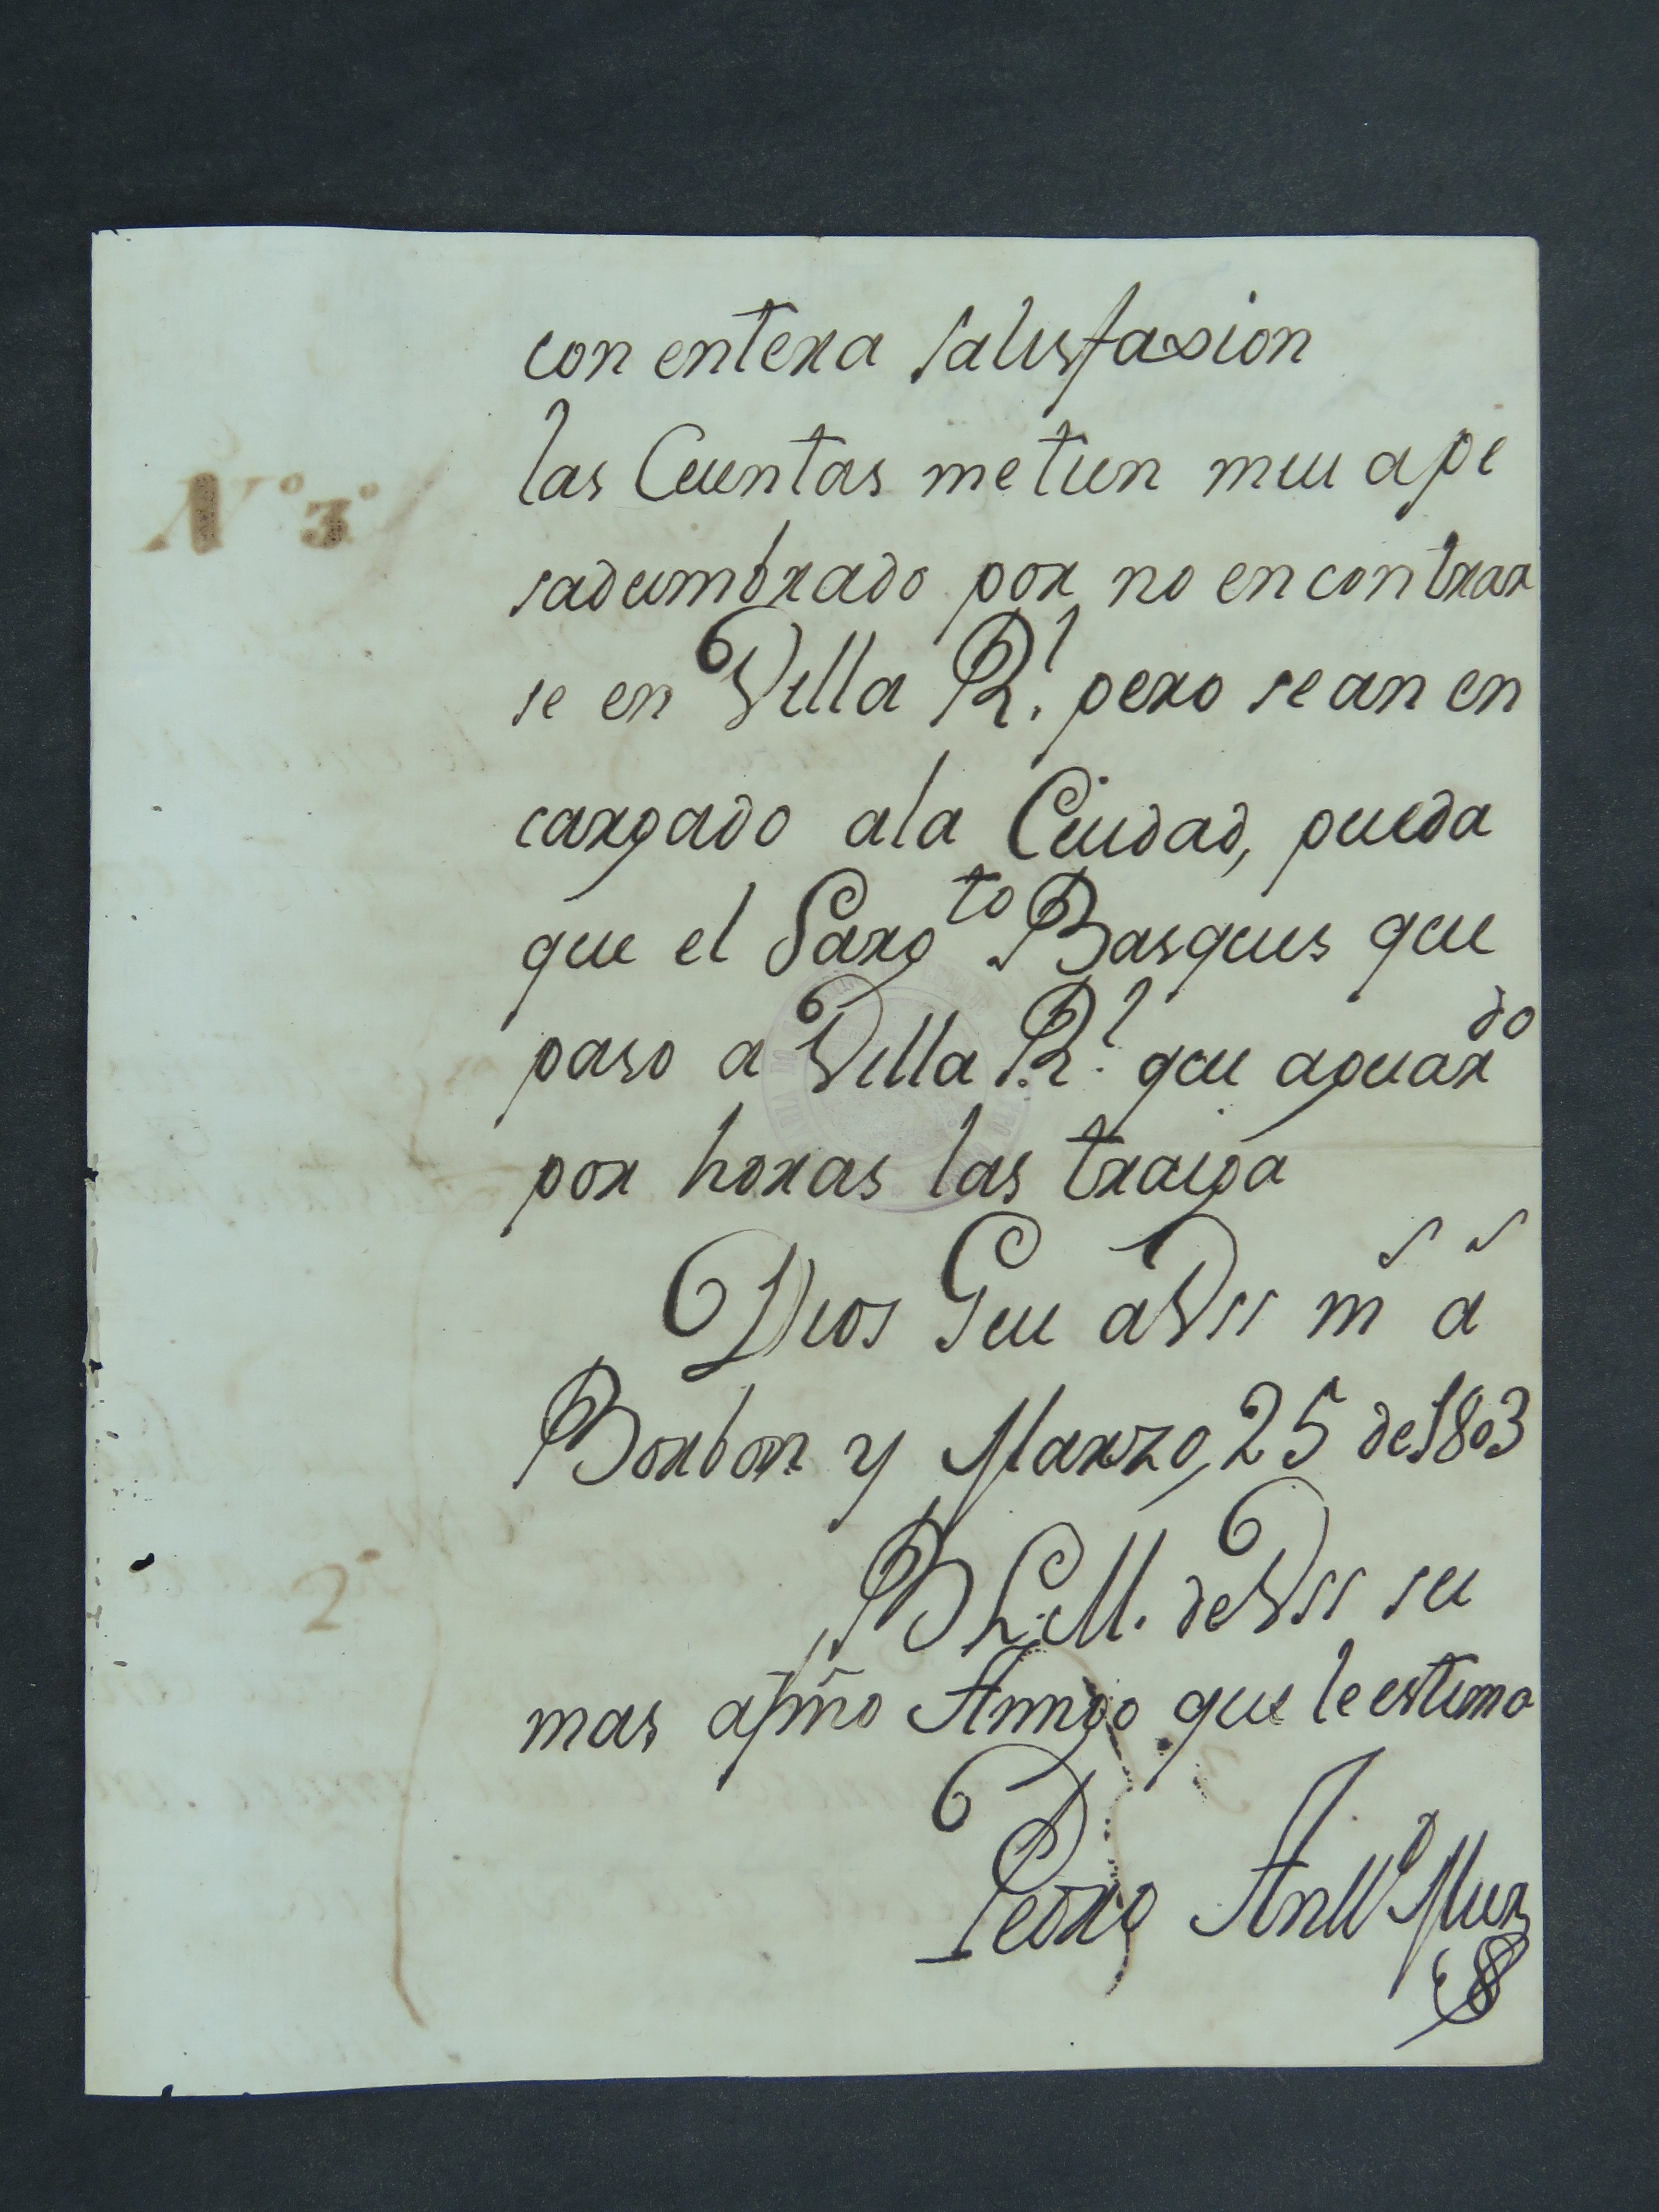 con entera satisfaxion
las Cuentas metien mui ape
N.º 3º
sadumbrado por no encontrar
se en Villa R.l pero se an en
cargado ala Ciudad, pueda
que el Sarg.to Basques que
paso a Villa R.l que aguar.do
por horas las traiga
Dios Gue a Vss m.s a.s
Borbon y Marzo, 25 de 1803
B L. M. de Vss su
2º
mas afmo Amigo que le estima
Pedro Antto